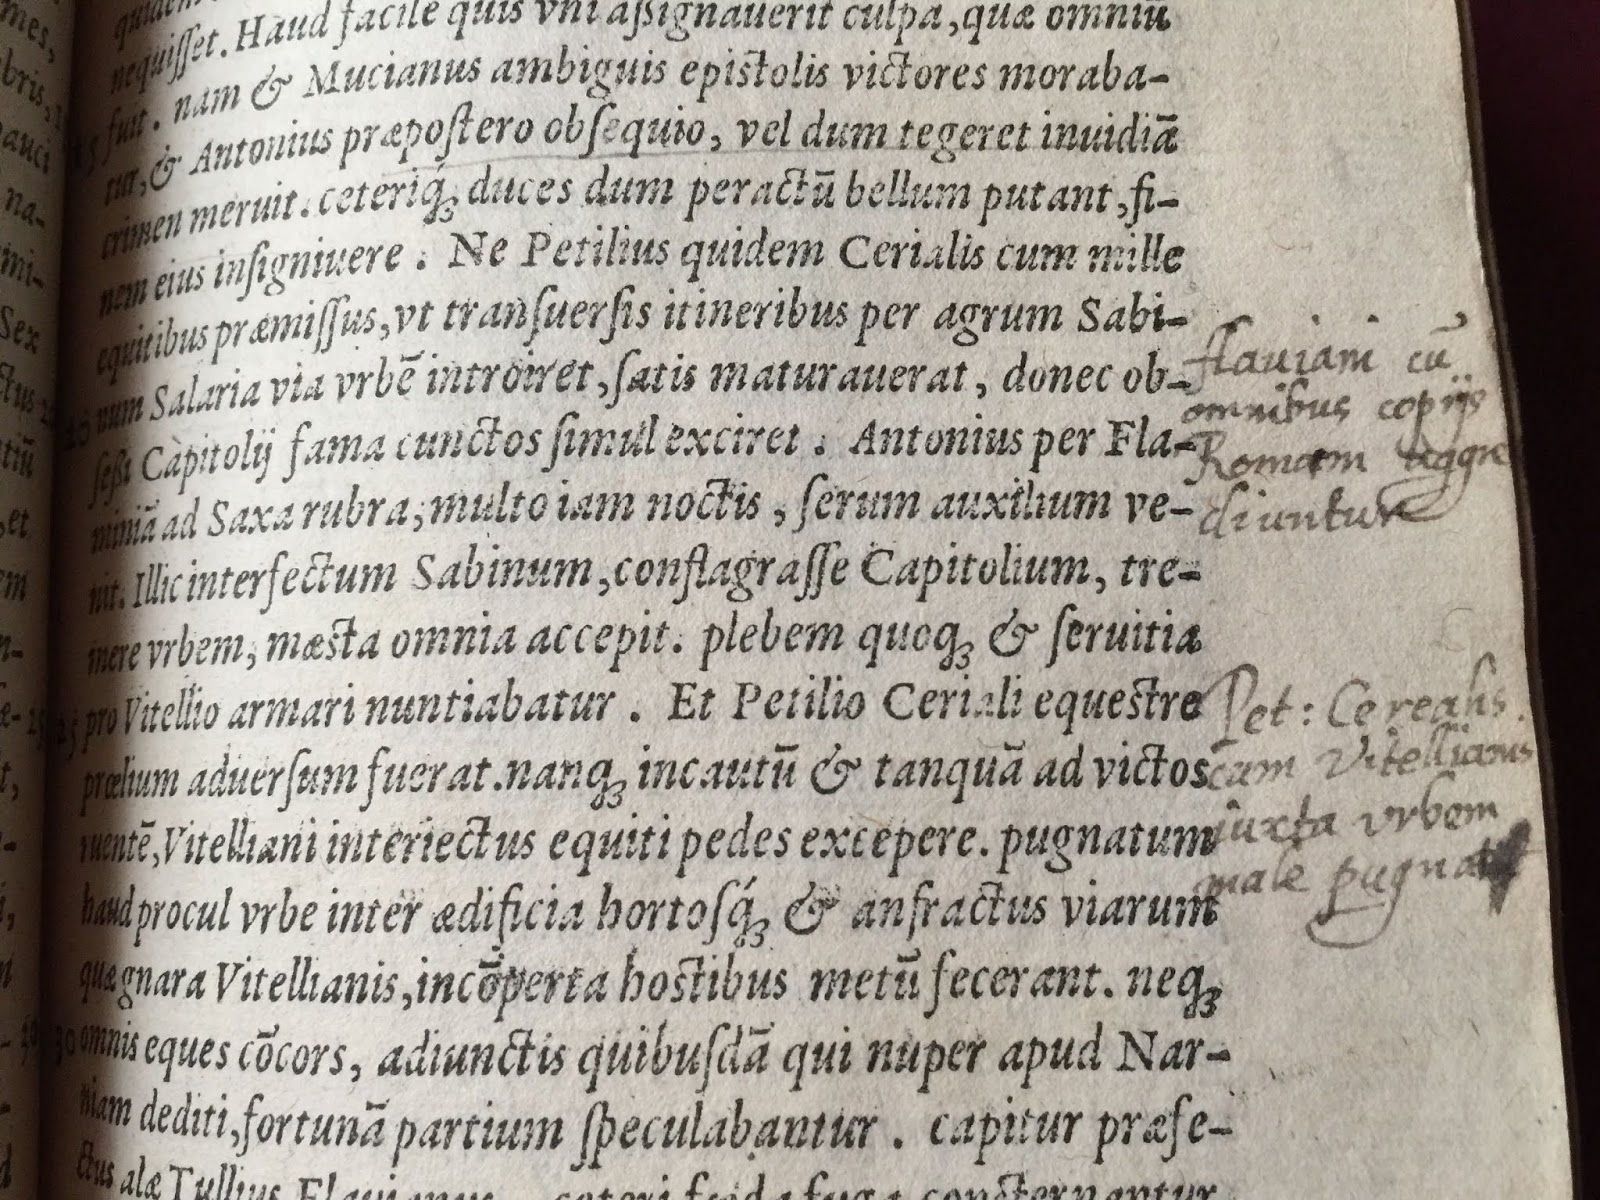 nequisset. Haud facile quis vni assignauerit culpā, quæ omniū
fuit. nam & Mucianus ambiguis epistolis victores moraba-
tur, & Antonius præpostero obsequio, vel dum tegeret inuidiā
crimen meruit. ceteriq́ꝫ duces dum peractū bellum putant, fi-
nem eius insigniuere. Ne Petilius quidem Cerialis cum mille
equitibus præmissus, vt transuersis itineribus per agrum Sabi-
num Salaria via vrbē introiret, satis maturauerat, donec ob-
sessi Capitolij fama cunctos simul exciret. Antonius per Fla-
miniā ad Saxa rubra, multo iam noctis, serum auxilium ve-
nit. Illic interfectum Sabinum, conflagrasse Capitolium, tre-
mere vrbem, mæsta omnia accepit. plebem quoqꝫ & seruitia
pro Vitellio armari nuntiabatur. Et Petilio Ceriali equestre
prælium aduersum fuerat. nanqꝫ incautū & tanquā ad victos
ruentē, Vitelliani interiectus equiti pedes excepere. pugnatum
haud procul vrbe inter ædificia hortosq́ꝫ & anfractus viarum
quæ gnara Vitellianis, incōperta hostibus metū fecerant. neqꝫ
omnis eques cōcors, adiunctis quibusdā qui nuper apud Nar-
niam dediti, fortunā partium speculabantur. capitur præfe-
ctus alæ Tullius Flauianus. ceteri fœda fuga consternantur
flauiani cū
omnibus copijs
Romam aggre
diuntur
Pet: Cerealis
cum Vitellianis
iuxta vrbem
male
15
20
25
30